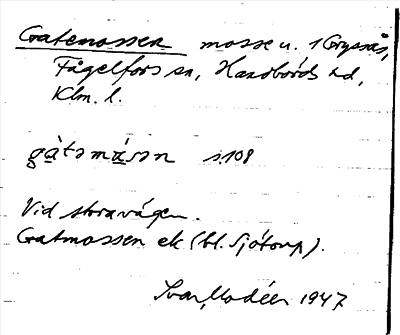 Gatemossen mosse u. 1 Gryssås,
Fågelfors sn, Handbörds hd,
Klm. l.
gàtəmåsən s. 108
Vid stora vägen.
Gatmossen ek (bl. Sjötorp).
Ivar Modéer 1947